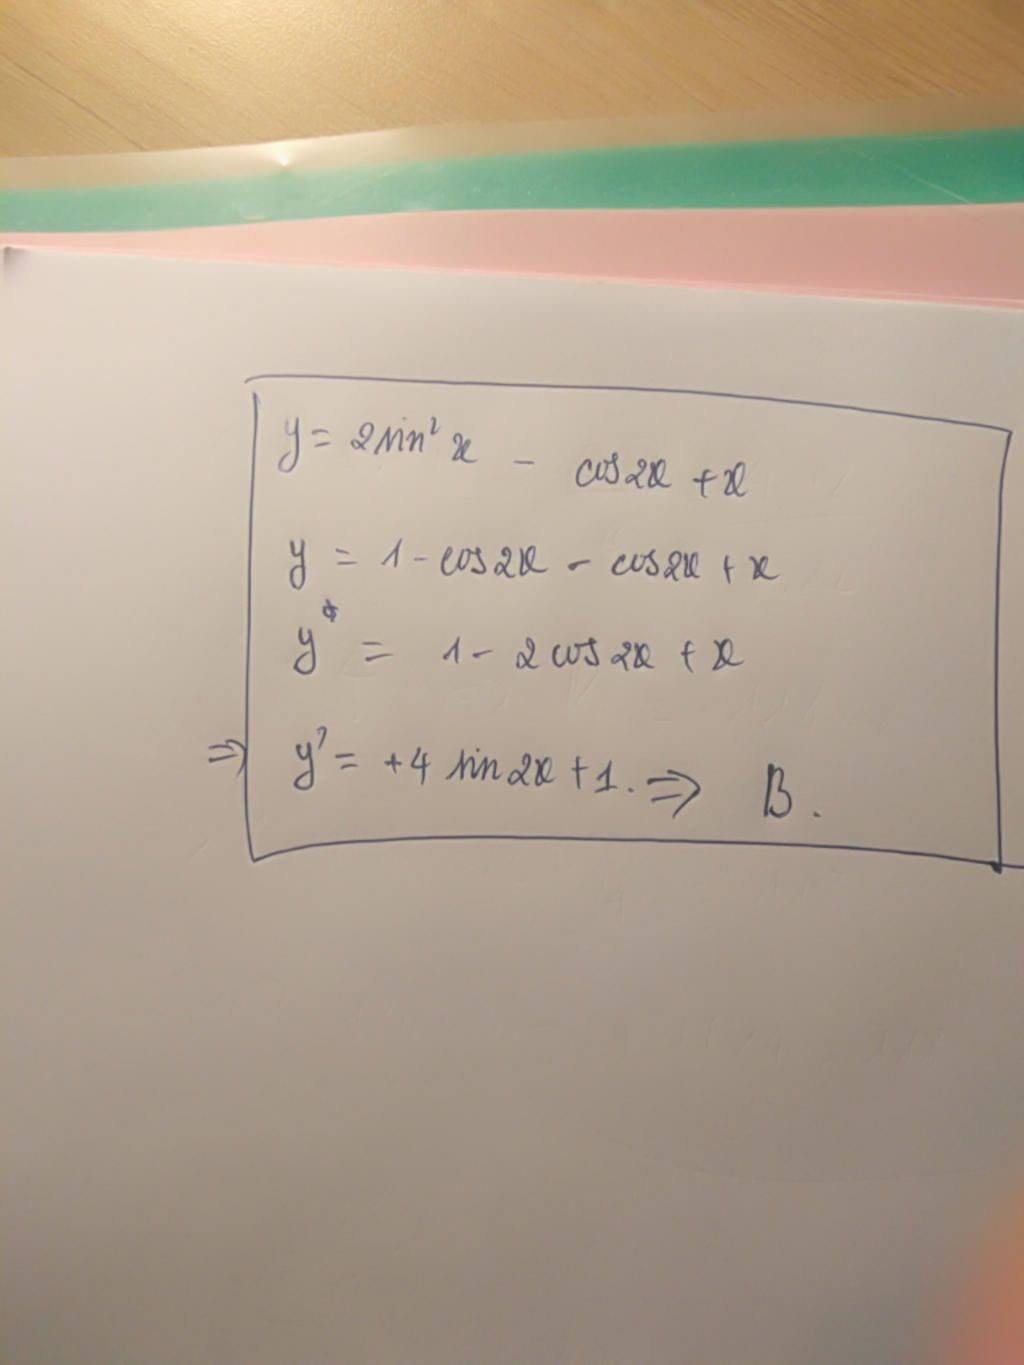 y = 2 sin² x - cos 2x + x
y = 1 - cos 2x - cos 2x + x
y = 1 - 2 cos 2x + x
⇒ y' = +4 sin 2x + 1. ⇒ B.